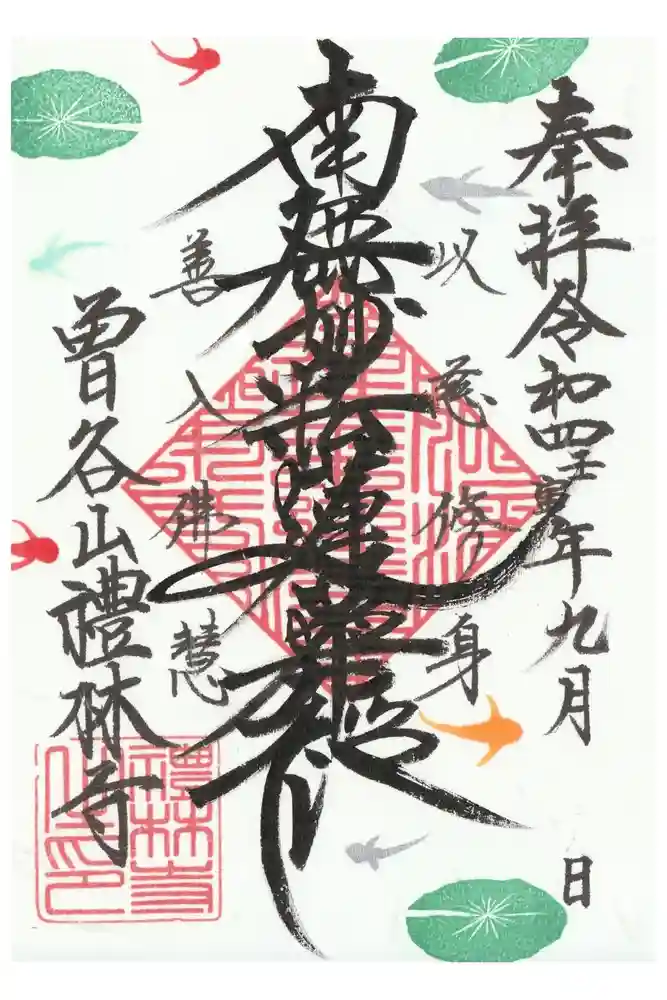 奉拜 令和四壬寅年九月 日
以慈修身
南無妙法蓮華経
善入佛慧
曽谷山禮林寺
禮林寺